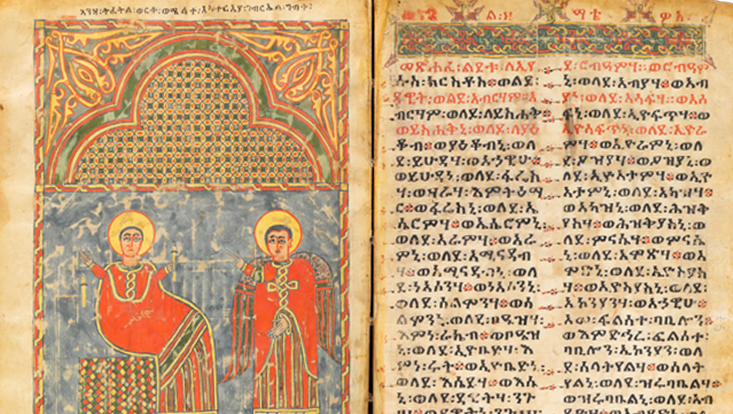 እንዘ፡ትፈትል፡ወርቀ፡ወሜላተ፡አስተርአያ፡ገብርኤል፡
መጽሐፈ፡ልደቱ፡ለኢየ
ሱስ፡ክርስቶስ፡ወልደ፡
ዳዊት፡ወልደ፡አብርሃም፡አ
ብርሃም፡ወለደ፡ይስሐቅ
ወይስሐቅኒ፡ወለደ፡ለያዕ
ቆብ፡ወያዕቆብኒ፡ወለ
ደ፡ይሁዳሃ፡ወአኃዊሁ፡
ወይሁዳኒ፡ወለደ፡ፋሬስ
ሃ፡ወዛራሃ፡እምትዕማ
ር፡ወፋሬስኒ፡ወለደ፡ኤ
ስሮምሃ፡ወኤስሮምኒ፡
ወለደ፡አራምሃ፡ወአራ
ምኒ፡ወለደ፡አሚናዳብ
ሃ፡ወአሚናዳብኒ፡ወለ
ደ፡ነአሶንሃ፡ወነአሶንኒ፡
ወለደ፡ሰልሞንሃ፡ወሰ
ልሞንኒ፡ወለደ፡ቦዔዝሃ፡
እምነ፡ራኬብ፡ወቦዔዝ
ኒ፡ወለደ፡ኢዮቤድሃ፡እ
ምነ፡ሩት፡ወኢዮቤድኒ፡
ወለደ፡እሴይሃ፡ወእሴ
ይኒ፡ወለደ፡ዳዊትሃ፡ንጉ
ደ፡ሮብዓምሃ፡ወሮብዓም
ኒ፡ወለደ፡አብያሃ፡ወአብ
ያኒ፡ወለደ፡አሳፍሃ፡ወአሳ
ፍኒ፡ወለደ፡ኢዮሳፍጥሃ፡ወ
ኢዮሳፍጥኒ፡ወለደ፡ኢዮራ
ምሃ፡ወኢዮራምኒ፡ወለ
ደ፡ዖዝያሃ፡ወዖዝያኒ፡ወ
ለደ፡ኢዮአታምሃ፡ወኢዮ
አታምኒ፡ወለደ፡አካዝሃ፡
ወአካዝኒ፡ወለደ፡ሕዝቅ
ያስሃ፡ወሕዝቅያስኒ፡ወ
ለደ፡ምናሴሃ፡ወምናሴ
ኒ፡ወለደ፡አሞጽሃ፡ወአ
ሞጽኒ፡ወለደ፡ኢዮስያ
ስሃ፡ወኢዮስያስኒ፡ወለደ፡
ኢኮንያንሃ፡ወአኃዊሁ፡
አመ፡ፍልሰተ፡ባቢሎን፡
ወእምድኅረ፡ፍልሰተ
ባቢሎን፡ኢኮንያን፡ወለ
ደ፡ሰላትያልሃ፡ወሰላት
ያልኒ፡ወለደ፡ዘሩባቤልሃ